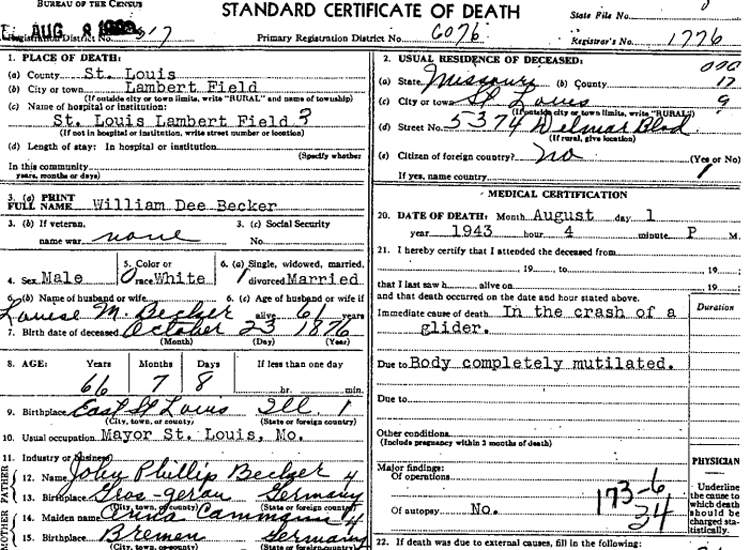 BUREAU OF THE CENSUS
STANDARD CERTIFICATE OF DEATH
State File No.
AUG 8 317
Registration District No.
Primary Registration District No. 6076
Registrar's No. 1776
1. PLACE OF DEATH:
(a) County St. Louis
(b) City or town Lambert Field
(If outside city or town limits, write "RURAL" and name of township)
(c) Name of hospital or institution:
St. Louis Lambert Field 3
(If not in hospital or institution, write street number or location)
(d) Length of stay: In hospital or institution
(Specify whether
In this community
years, months or days)
3. (a) PRINT FULL NAME William Dee Becker
3. (b) If veteran, name war none
3. (c) Social Security No.
4. Sex Male
5. Color or race White
6. (a) Single, widowed, married, divorced Married
6. (b) Name of husband or wife Louise M. Becker
6. (c) Age of husband or wife if alive 61 years
7. Birth date of deceased October 23 1876
(Month) (Day) (Year)
8. AGE: Years Months Days If less than one day
66 7 8 hr. min.
9. Birthplace East St Louis Ill. 1
(City, town, or county) (State or foreign country)
10. Usual occupation Mayor St. Louis, Mo.
11. Industry or business
FATHER
12. Name John Phillip Becker 4
13. Birthplace Gros-gerau Germany
(City, town, or county) (State or foreign country)
MOTHER
14. Maiden name Anna Cammann 4
15. Birthplace Bremen Germany
(City, town, or county) (State or foreign country)
2. USUAL RESIDENCE OF DECEASED:
(a) State Missouri (b) County 17
(c) City or town St Louis 9
(If outside city or town limits, write "RURAL")
(d) Street No. 5374 Delmar Blvd
(If rural, give location)
(e) Citizen of foreign country? no (Yes or No)
If yes, name country 1
MEDICAL CERTIFICATION
20. DATE OF DEATH: Month August day 1
year 1943 hour 4 minute P M.
21. I hereby certify that I attended the deceased from
, 19 , to , 19 ;
that I last saw h alive on , 19 ;
and that death occurred on the date and hour stated above.
Duration
Immediate cause of death In the crash of a
glider.
Due to Body completely mutilated.
Due to
Other conditions
(Include pregnancy within 3 months of death)
Major findings:
Of operations
Of autopsy No.
173-6
34
PHYSICIAN
Underline
the cause to
which death
should be
charged sta-
tistically.
22. If death was due to external causes, fill in the following: